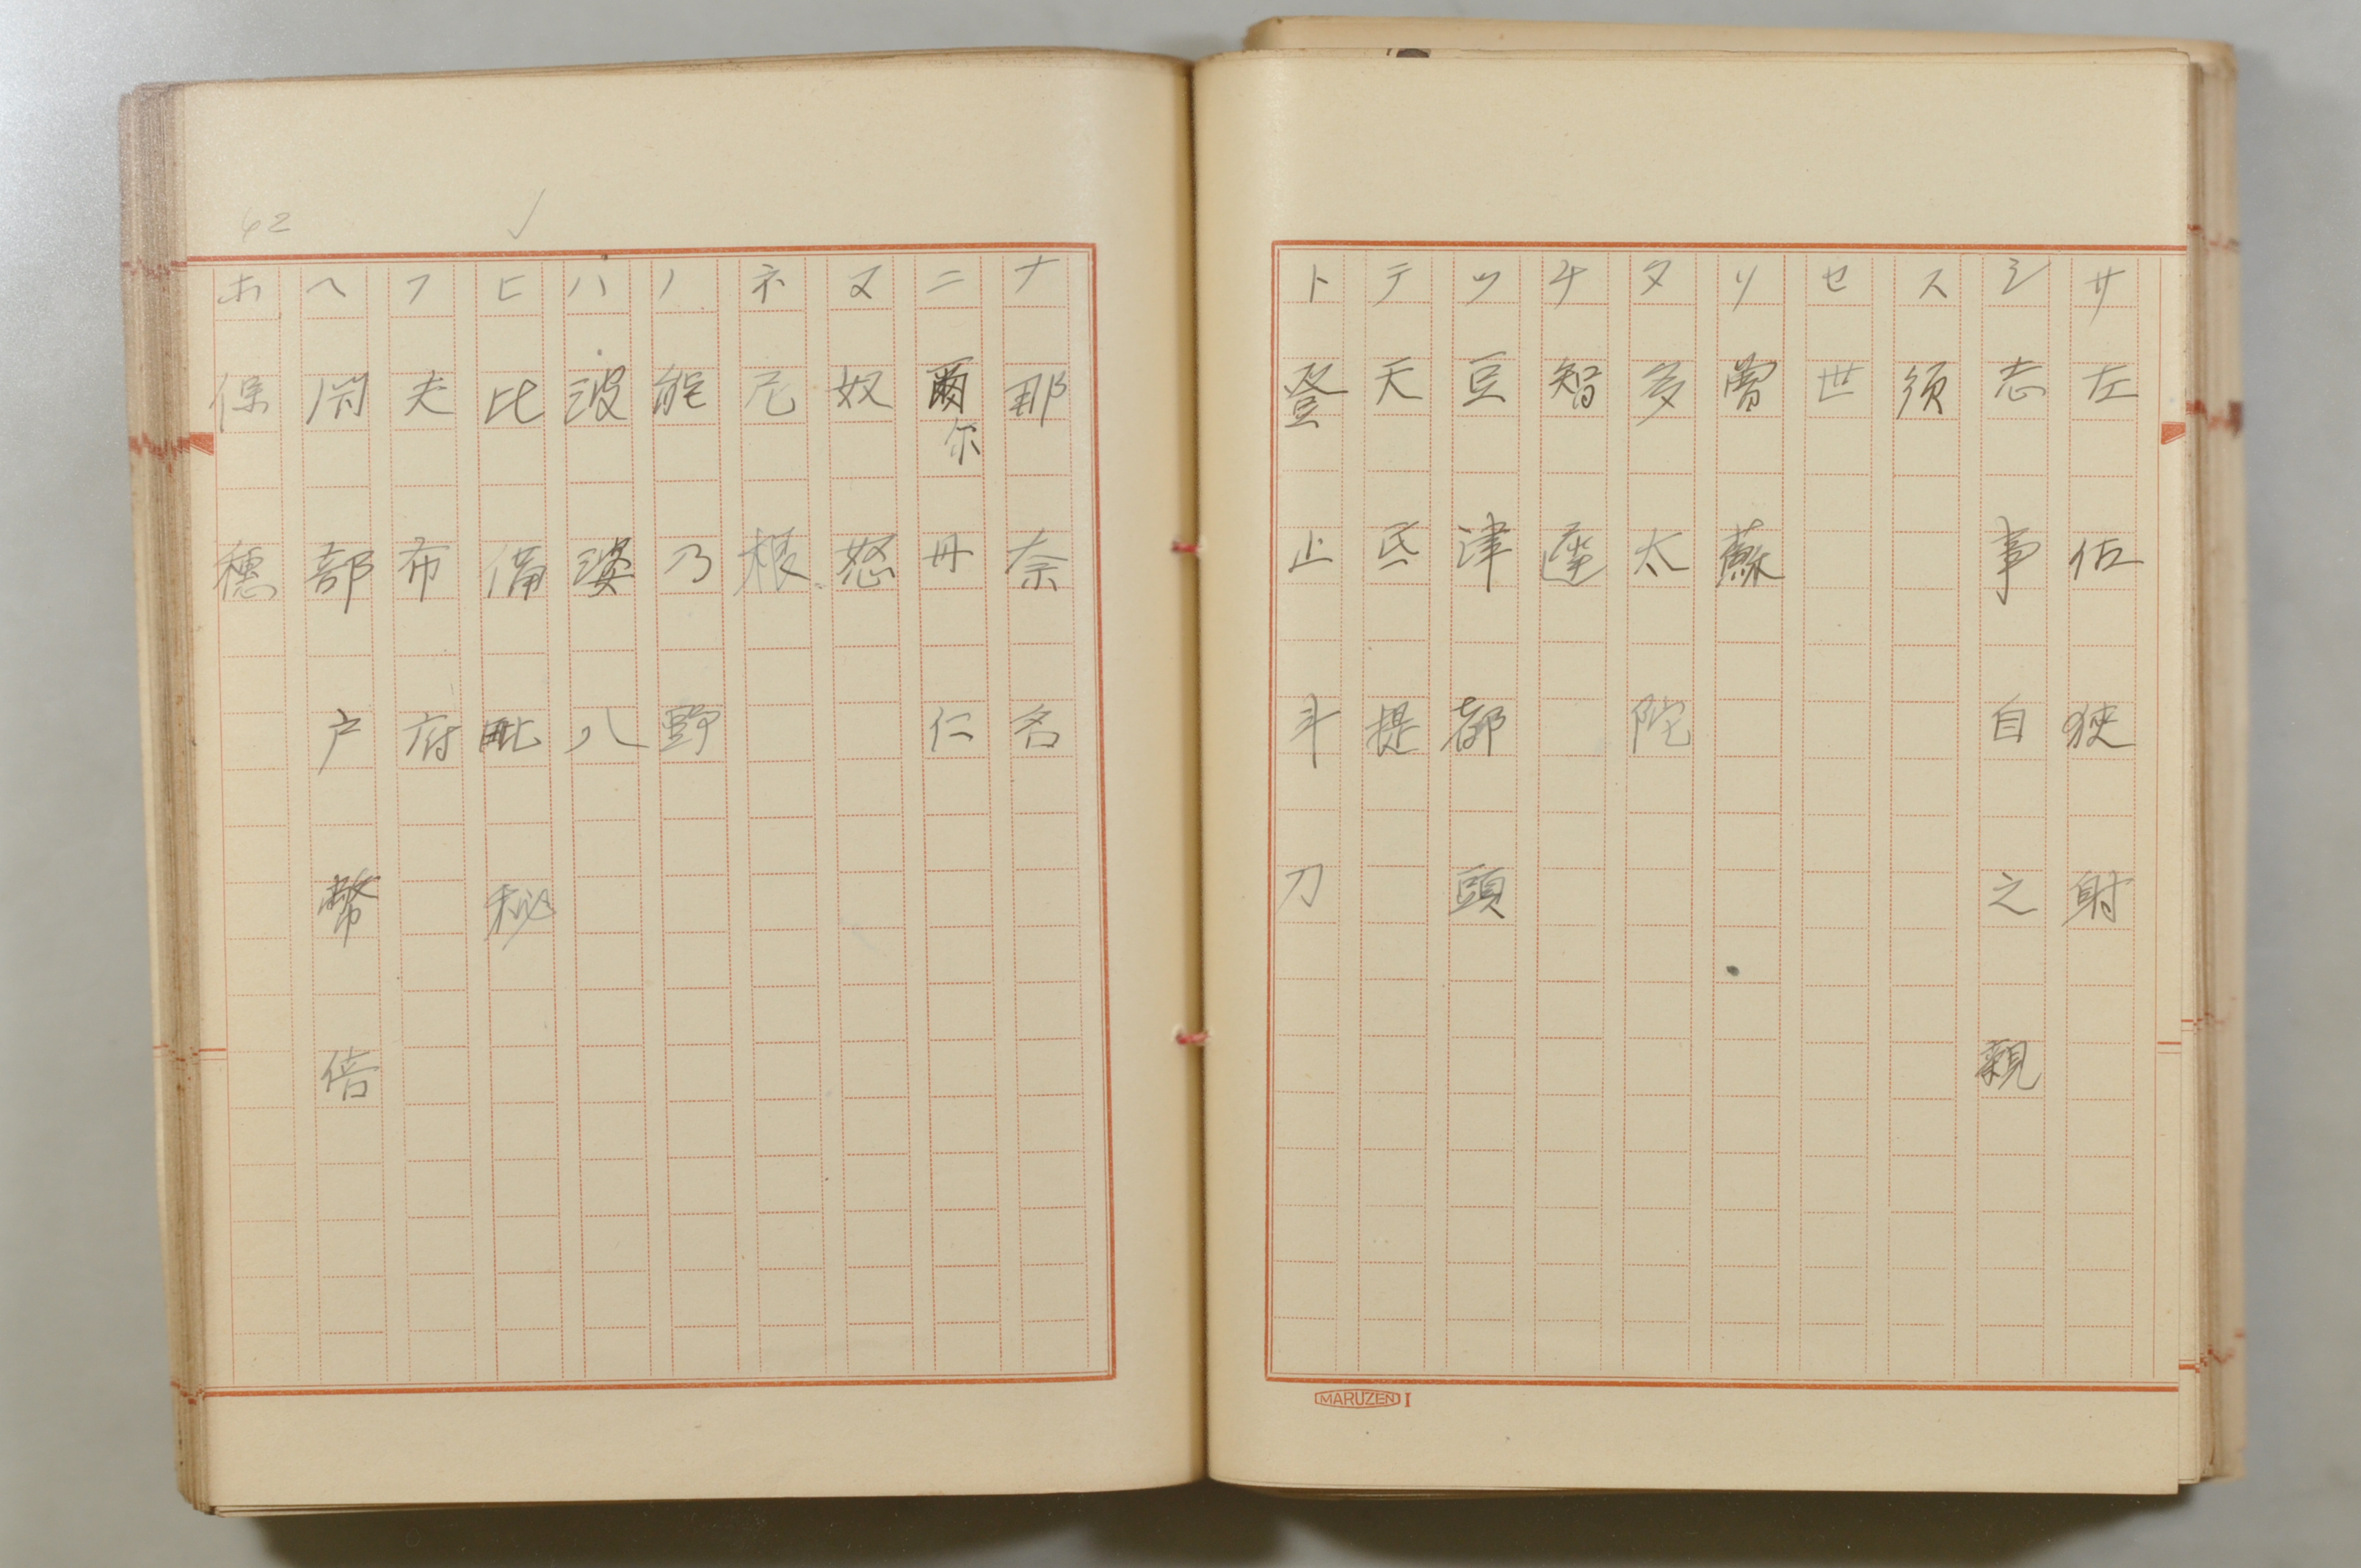 サ 左 佐 狹 射
シ 志 事 自 之 親
ス 須
セ 世
ソ 曽 蘇
タ 多 太 陀
チ 智 遅
ツ 豆 津 都 頭
テ 天 氐 提
ト 登 止 斗 刀
MARUZEN I
42 ✓
ナ 那 奈 名
ニ 爾 尓 丹 仁
ヌ 奴 怒
ネ 尼 根
ノ 能 乃 野
ハ 波 婆 八
ヒ 比 備 毗 秘
フ 夫 布 府
ヘ 閇 部 戸 幣 倍
ホ 保 穗